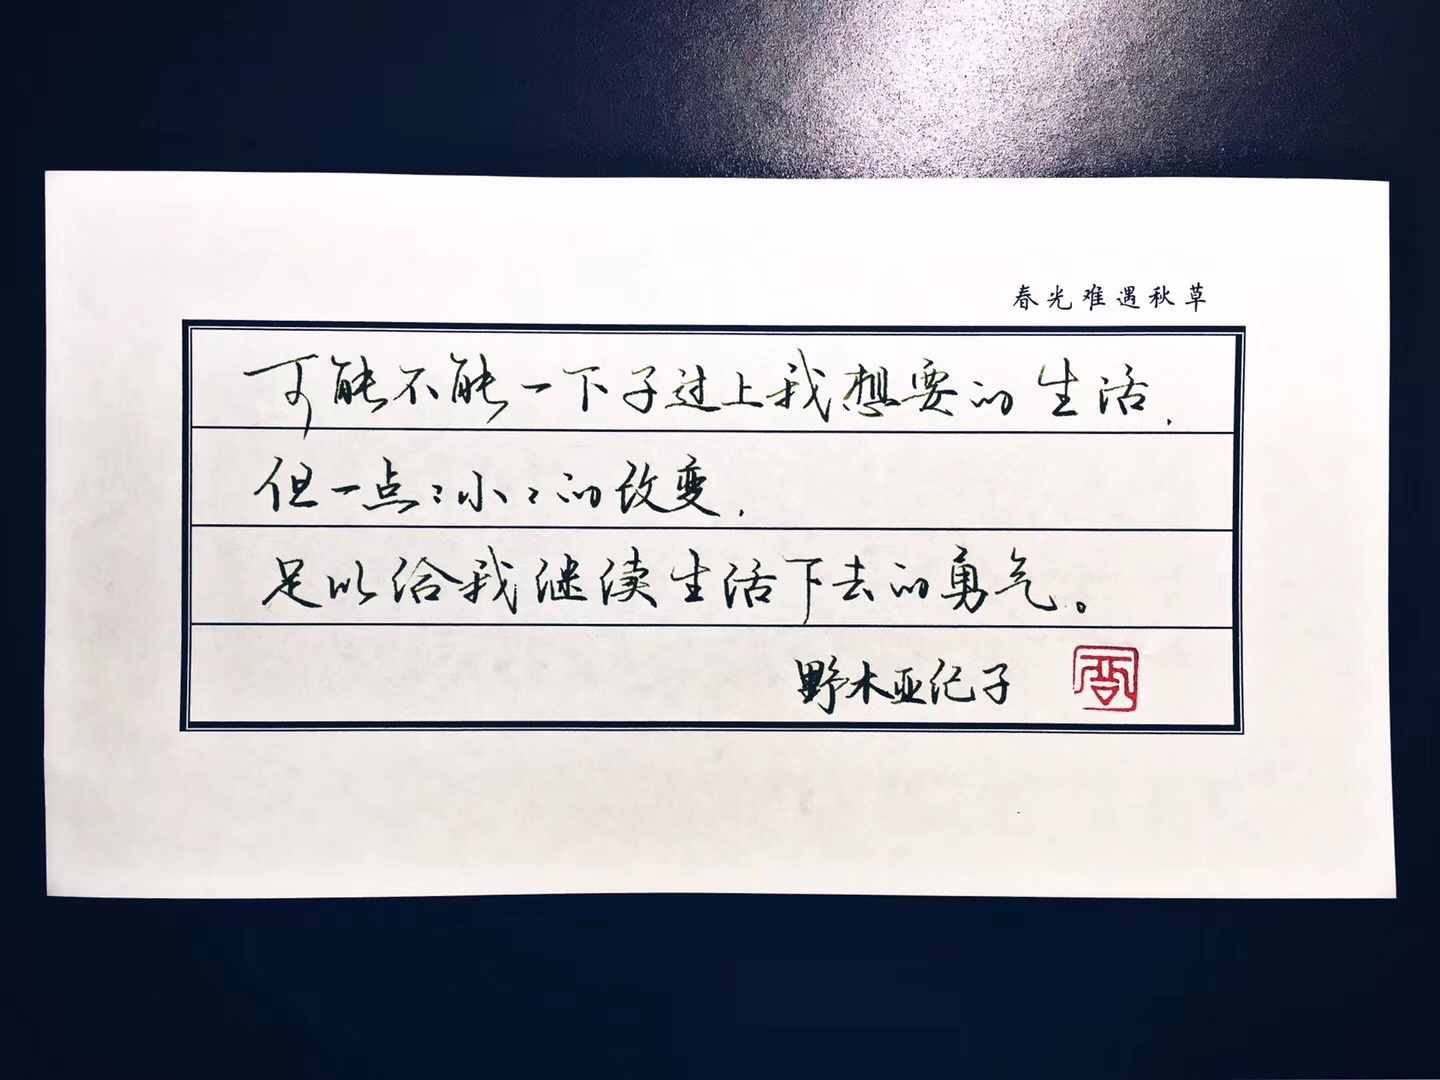 春光难遇秋草
可能不能一下子过上我想要的生活，
但一点点小小的改变，
足以给我继续生活下去的勇气。
野木亚纪子